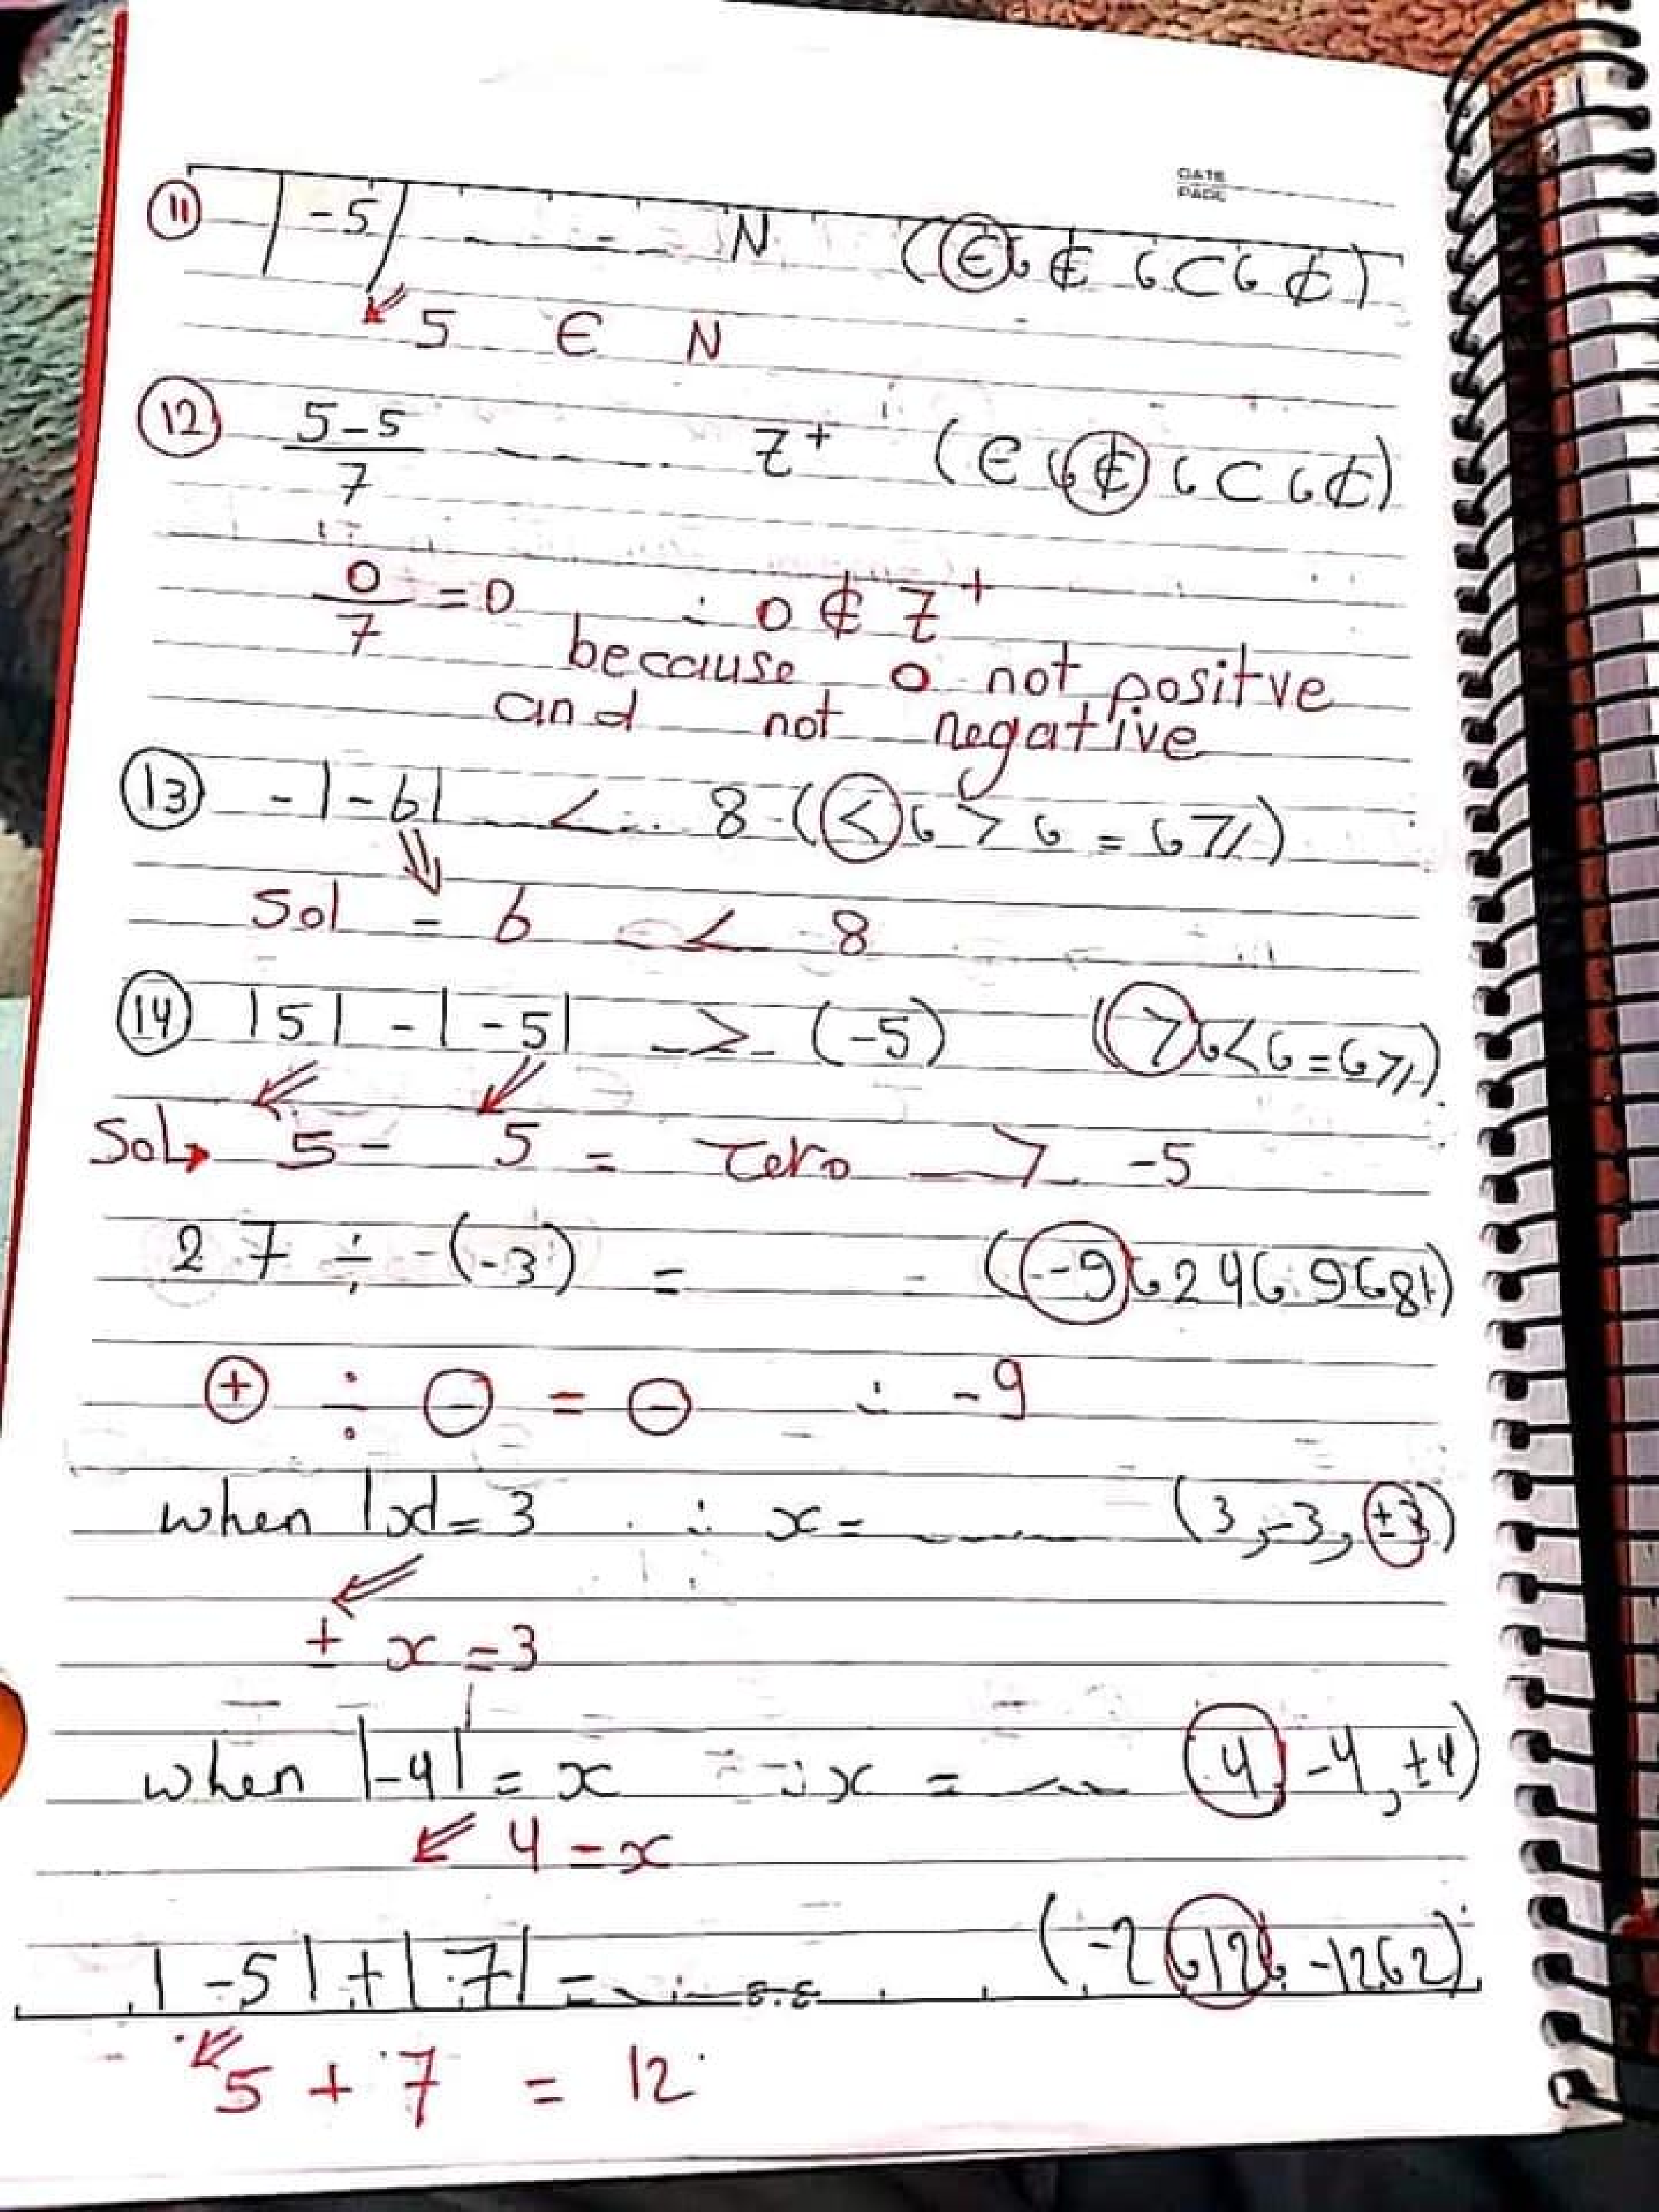 DATE
PAGE
11 |-5| ------ N (∈ ، ∉ ، ⊂ ، ⊄)
5 ∈ N
12 5-5/7 ------ Z⁺ (∈ ، ∉ ، ⊂ ، ⊄)
0/7 = 0 ∴ 0 ∉ Z⁺
because 0 not positve
and not negative
13 -|-6| < 8 (< ، > ، = ، ≥)
Sol -6 < 8
14 |5| - |-5| > (-5) (> ، < ، = ، ≥)
Sol 5 - 5 = Zero > -5
27 ÷ (-3) = (-9 ، 24 ، 9 ، 81)
+ ÷ - = - ∴ -9
when |x| = 3 ∴ x = ------ (3, -3, ±3)
± x = 3
when |-4| = x ∴ x = ------ (4, -4, ±4)
4 = x
|-5| + |7| = ------ (-2 ، 12 ، -12 ، 2)
5 + 7 = 12